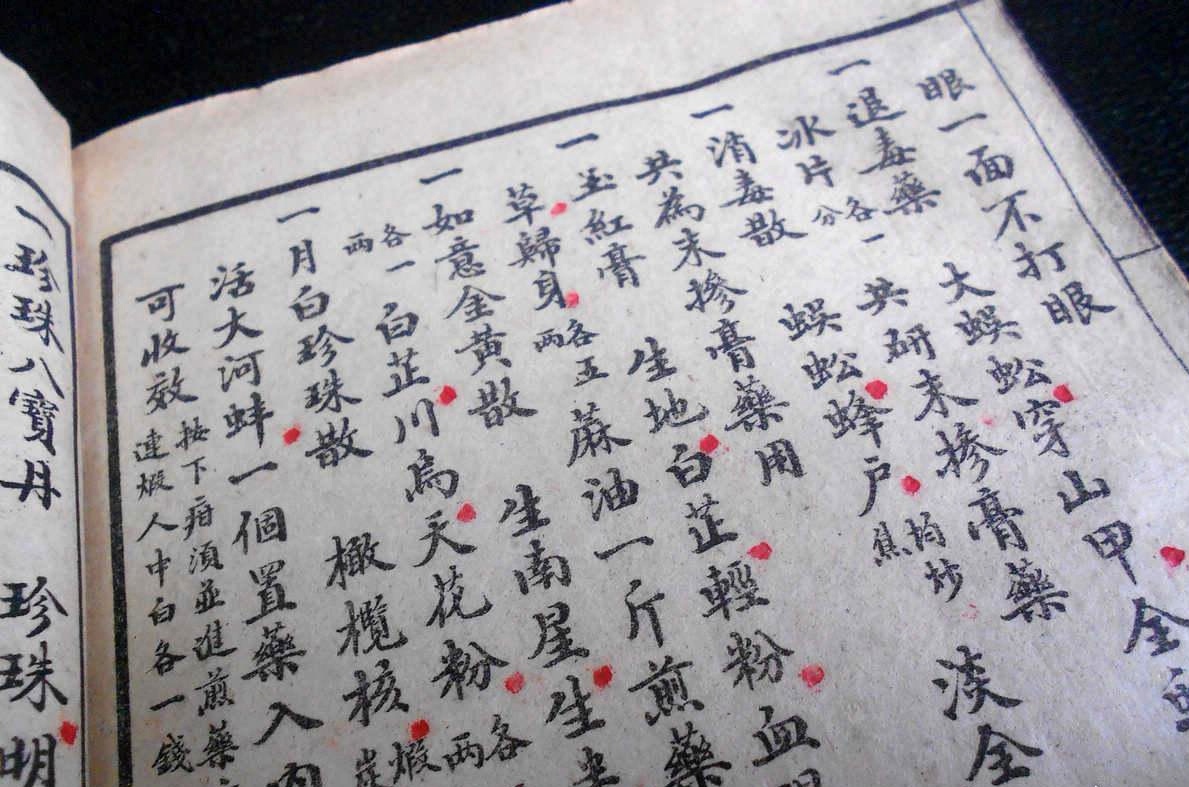 眼一面不打眼
一退毒藥 大蜈蚣穿山甲全
冰片各一分 共研末摻膏藥
一消毒散 蜈蚣蜂戶均炒焦 淡全
共為末摻膏藥用
一玉紅膏 生地白芷輕粉血
草歸身各五兩 麻油一斤煎藥
一如意金黃散 生南星生
各一兩 白芷川烏天花粉各兩
一月白珍珠散 橄欖核煅
活大河蚌一個置藥入內
可收效 按下疳須並進煎藥
連煅人中白各一錢
一珍珠八寶丹 珍珠明